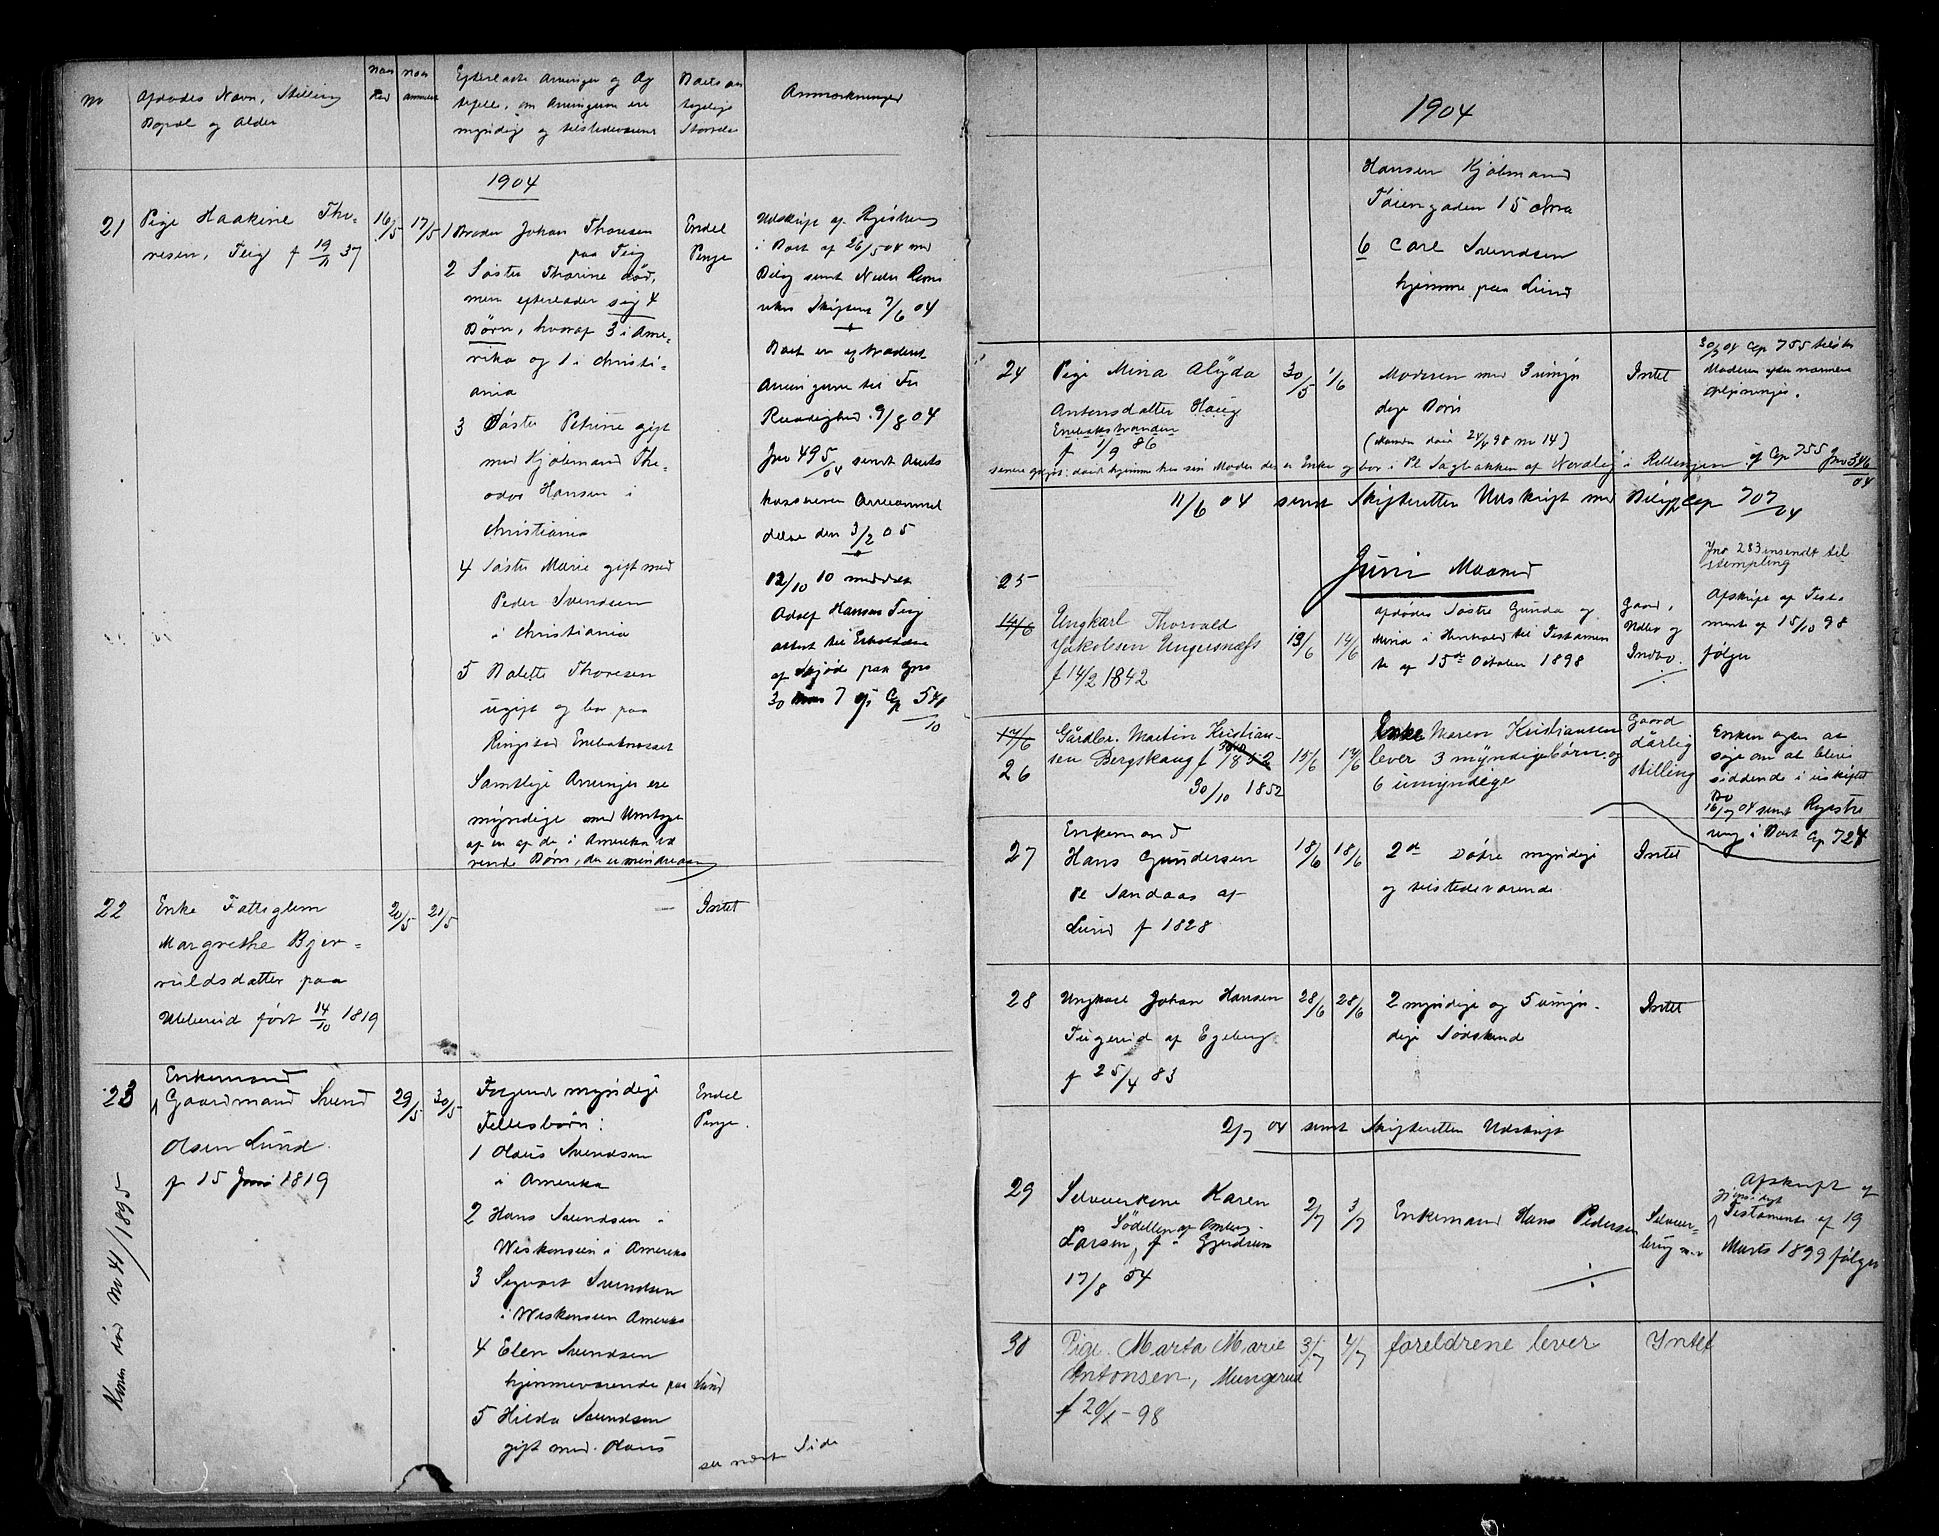 No
Afdødes Navn, Stilling
Bopæl og Alder
naar
død
naar
anmeldt
Efterladte Arvinger og Æg
tefelle, om Arvingerne ere
myndige og tilstedeværende
Boets an
tagelige
Størrelse
Anmærkninger
1904
21
Pige Haakine Tho-
resen, Teig f 19/11 37
16/5
17/5
1 Broder Johan Thoresen
paa Teig
2 Søster Thorine død,
men efterlader sig 4
Børn, hvoraf 3 i Ame-
rika og 1 i Christi-
ania
3 Søster Petrine gift
med Kjøbmand The-
odor Hansen i
Christiania
4 Søster Marie gift med
Peder Svendsen
i Christiania
5 Bolette Thoresen
ugift og bor paa
Ringstad Enebaknesset
Samtlige Arvinger ere
myndige med Undtagen
af en af de i Amerika væ
rende Børn, der er mindreaarig
Endel
Penge
Udskrift af Registrering
i Boet af 26/5 04 med
Bilag sendt Nedre Rome
rikes Skifteret 7/6 04
Boet er extraderet
Arvingerne til Fri
Raadighed 9/8 04
Jno 495/04 sendt Amts
kassereren Arveanmel
delse den 3/2 05
12/10 10 meddelt
Adolf Hansen Teig
attest til Erholdelse
af Skjøde paa Gno
30 Bno 7 cfr Cp 541/10
22
Enke Fattiglem
Margrethe Bjer-
vildsdatter paa
Ubberud født 14/10 1819
20/5
21/5
—
Intet
23
Enkemand
Gaardmand Svend
Olsen Lund
f 15 Juni 1819
Konen død No 41/1895
29/5
30/5
Følgende myndige
Fellesbørn:
1 Olaus Svendsen
i Amerika
2 Hans Svendsen i
Wiskonsein i Amerika
3 Sigvart Svendsen
i Wiskonsein Amerika
4 Elen Svendsen
hjemmeværende paa Lund
5 Hilda Svendsen
gift med Olaus
Endel
Penge
se næste Side
1904
Hansen Kjøbmand
Tøiengaden 15 Chra
6 Carl Svendsen
hjemme paa Lund
24
Pige Mina Alyda
Antonsdatter Haug
Enebakstranden
f 1/9 86
30/5
1/6
Moderen med 3 umyn
dige Børn
(Manden død 24/4 98 no 14)
Intet
30/7 04 Cp 755 tilskr
Moderen efter nærmere
oplysninger.
senere oplyst: død hjemme hos sin Moder der er Enke og bor i Pl Sagbakken af Nordby i Rellingen cf Cp 755 Jno 346/04
11/6 04 sendt Skifteretten Udskrift med Bilag Cop 707/04
Juni Maaned
25
14/6
Ungkarl Thorvald
Jakobsen Ungersnæss
f 14/2 1842
13/6
14/6
afdødes Søstre Gunda og
Maria i Henhold til Testamen
te af 15de October 1898
Gaard,
Udbo og
Indbo.
Jno 283 insendt til
stempling
Afskrift af Testa
ment af 15/10 98
følger
17/6
26
Gårdbr. Martin Kristian-
sen Bergskaug f 30/10 1852
30/10 1852
15/6
17/6
Enke Maren Kristiansen
lever 3 myndige børn og
6 umyndige
Gaard
dårlig
stilling
Enken agter at
søge om at blive
siddende i uskiftet
Bo
16/7 04 sendt Registre
ring i Boet Cp 724
27
Enkemand
Hans Gundersen
Pl Sandaas af
Lund f 1828
18/6
18/6
2de Døtre myndige
og tilstedeværende
Intet
28
Ungkarl Johan Hansen
Tugerud af Egeberg
f 25/4 83
28/6
28/6
2 myndige og 5 umyn-
dige Sødskende
Intet
2/7 04 sendt Skifteretten Udskrift
29
Selveierkone Karen
Sødellen af Amberg
Larsen, f i Gjerdrum
17/8 54
2/7
3/7
Enkemand Hans Pedersen
Selveier-
brug m.v
Afskrift af
gjensidigt
Testament af 19
Marts 1899 følger
30
Pige. Marta Marie
Antonsen, Mungerud
f 20/1 - 98
3/7
4/7
foreldrene lever
Intet